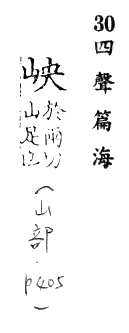 30四聲篇海
岟
於兩切
山足也
(山部.
p405)